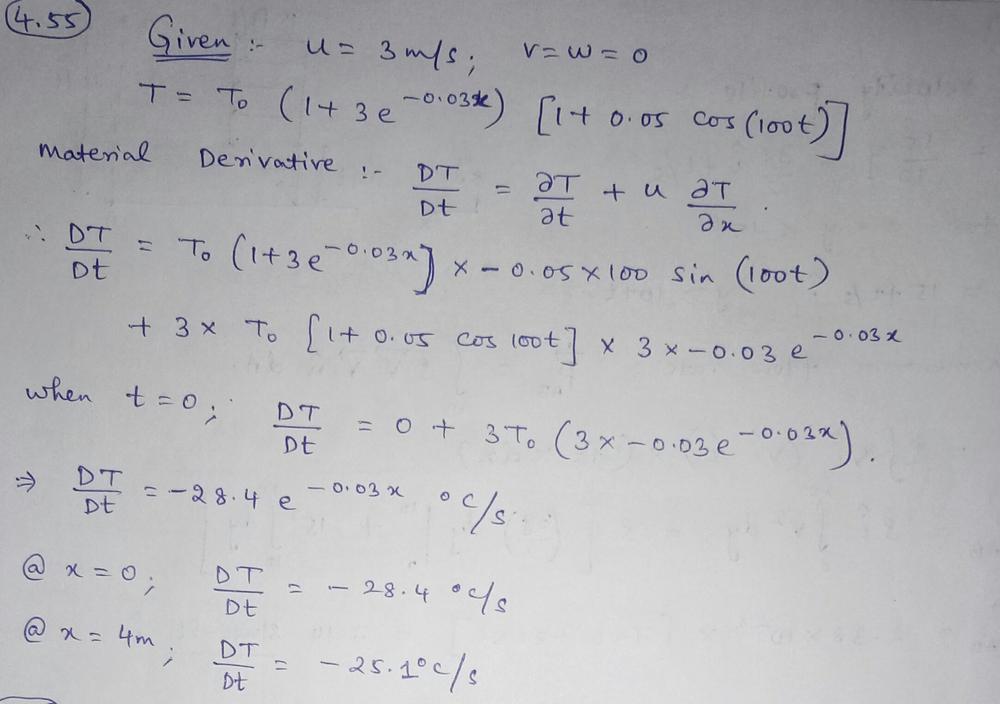 4.55
Given :- u = 3 m/s; v = w = 0
T = T₀ (1 + 3e^{-0.03x}) [1 + 0.05 cos(100t)]
Material Derivative :- DT/Dt = ∂T/∂t + u ∂T/∂x.
∴ DT/Dt = T₀ (1+3e^{-0.03x}] × -0.05×100 sin (100t)
+ 3 × T₀ [1 + 0.05 cos 100t] × 3 × -0.03 e^{-0.03x}
when t = 0; DT/Dt = 0 + 3T₀ (3 × -0.03e^{-0.03x}).
⇒ DT/Dt = -28.4 e^{-0.03x} °C/s.
@ x = 0; DT/Dt = - 28.4 °C/s
@ x = 4m; DT/Dt = - 25.1°C/s